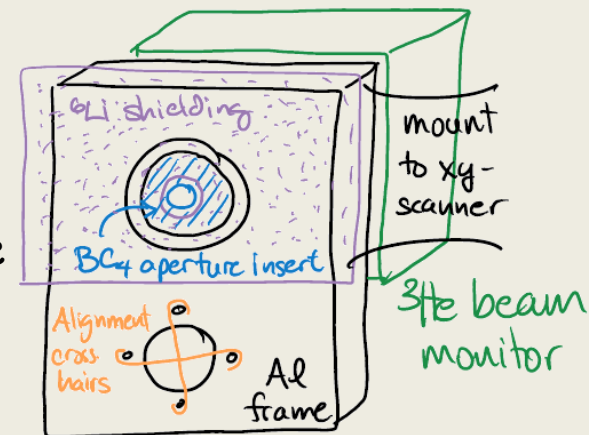 ⁶Li shielding
mount
to xy-
scanner
BC₄ aperture insert
³He beam
monitor
Alignment
cross
hairs
Al
frame